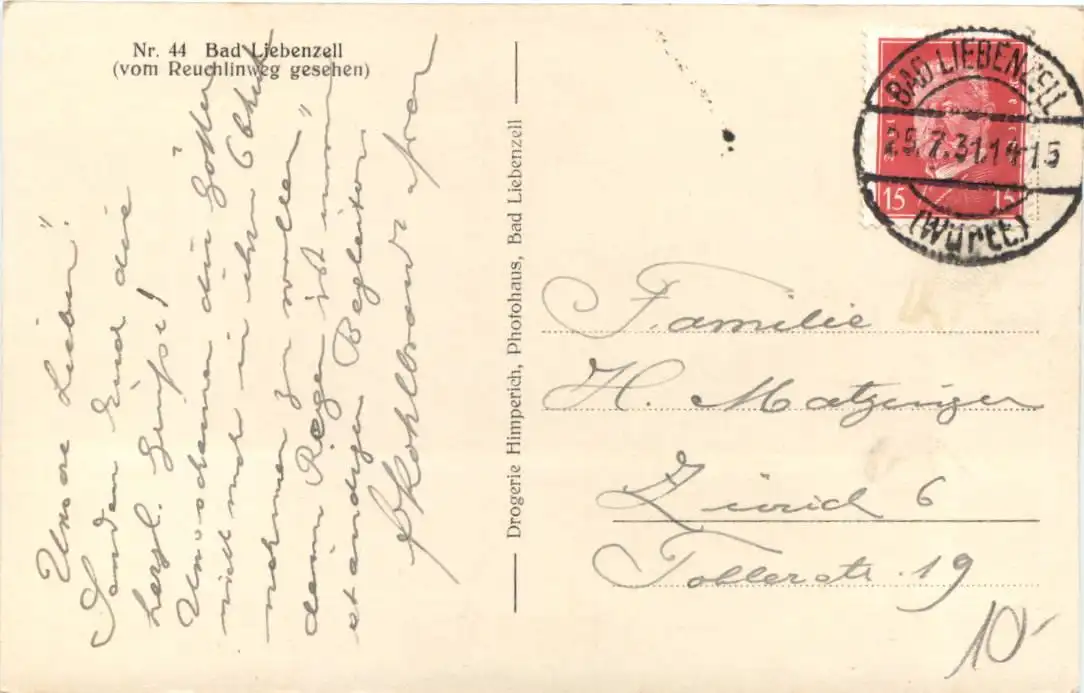 Nr. 44 Bad Liebenzell
(vom Reuchlinweg gesehen)
Unsre Lieben!
Senden Euch die
herzl. Grüße!
Uns scheinen die Götter
nicht mehr in ihre Obhut
nehmen zu wollen"
denn Regen ist unser
ständigen Begleiter
Drogerie Himperich, Photohaus, Bad Liebenzell
BAD LIEBENZELL
25.7.31.14-15
(Württ.)
15 15
Familie
H. Matzinger
Zürich 6
Toblerstr. 19
10'